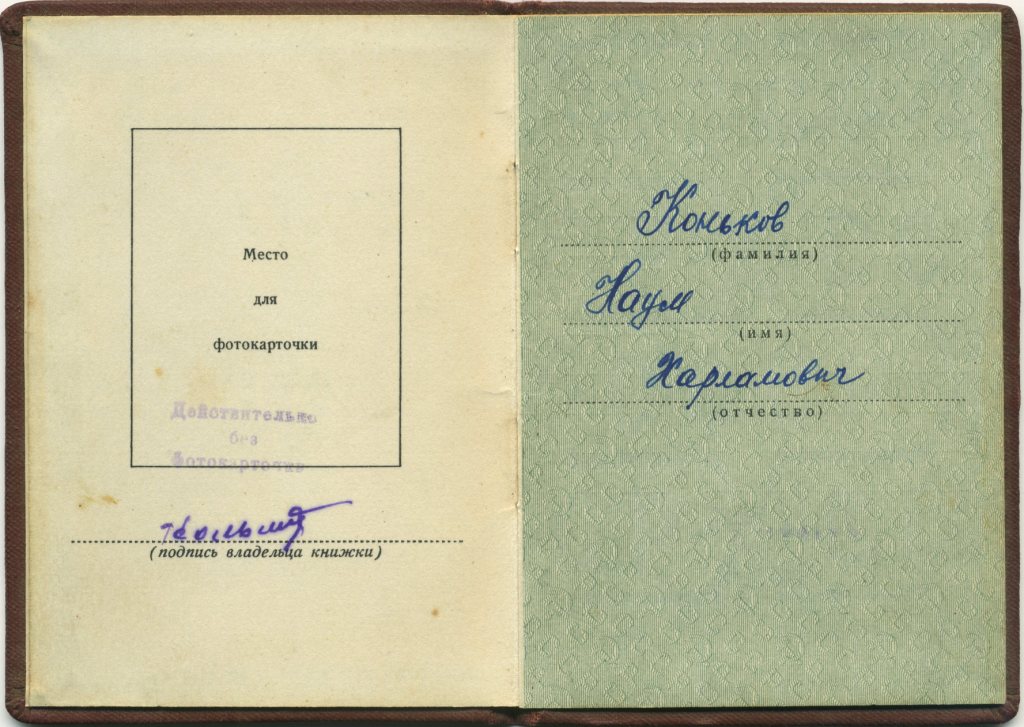 Место
для
фотокарточки
Действительно
без
фотокарточки
(подпись владельца книжки)
Коньков
(фамилия)
Наум
(имя)
Харламович
(отчество)